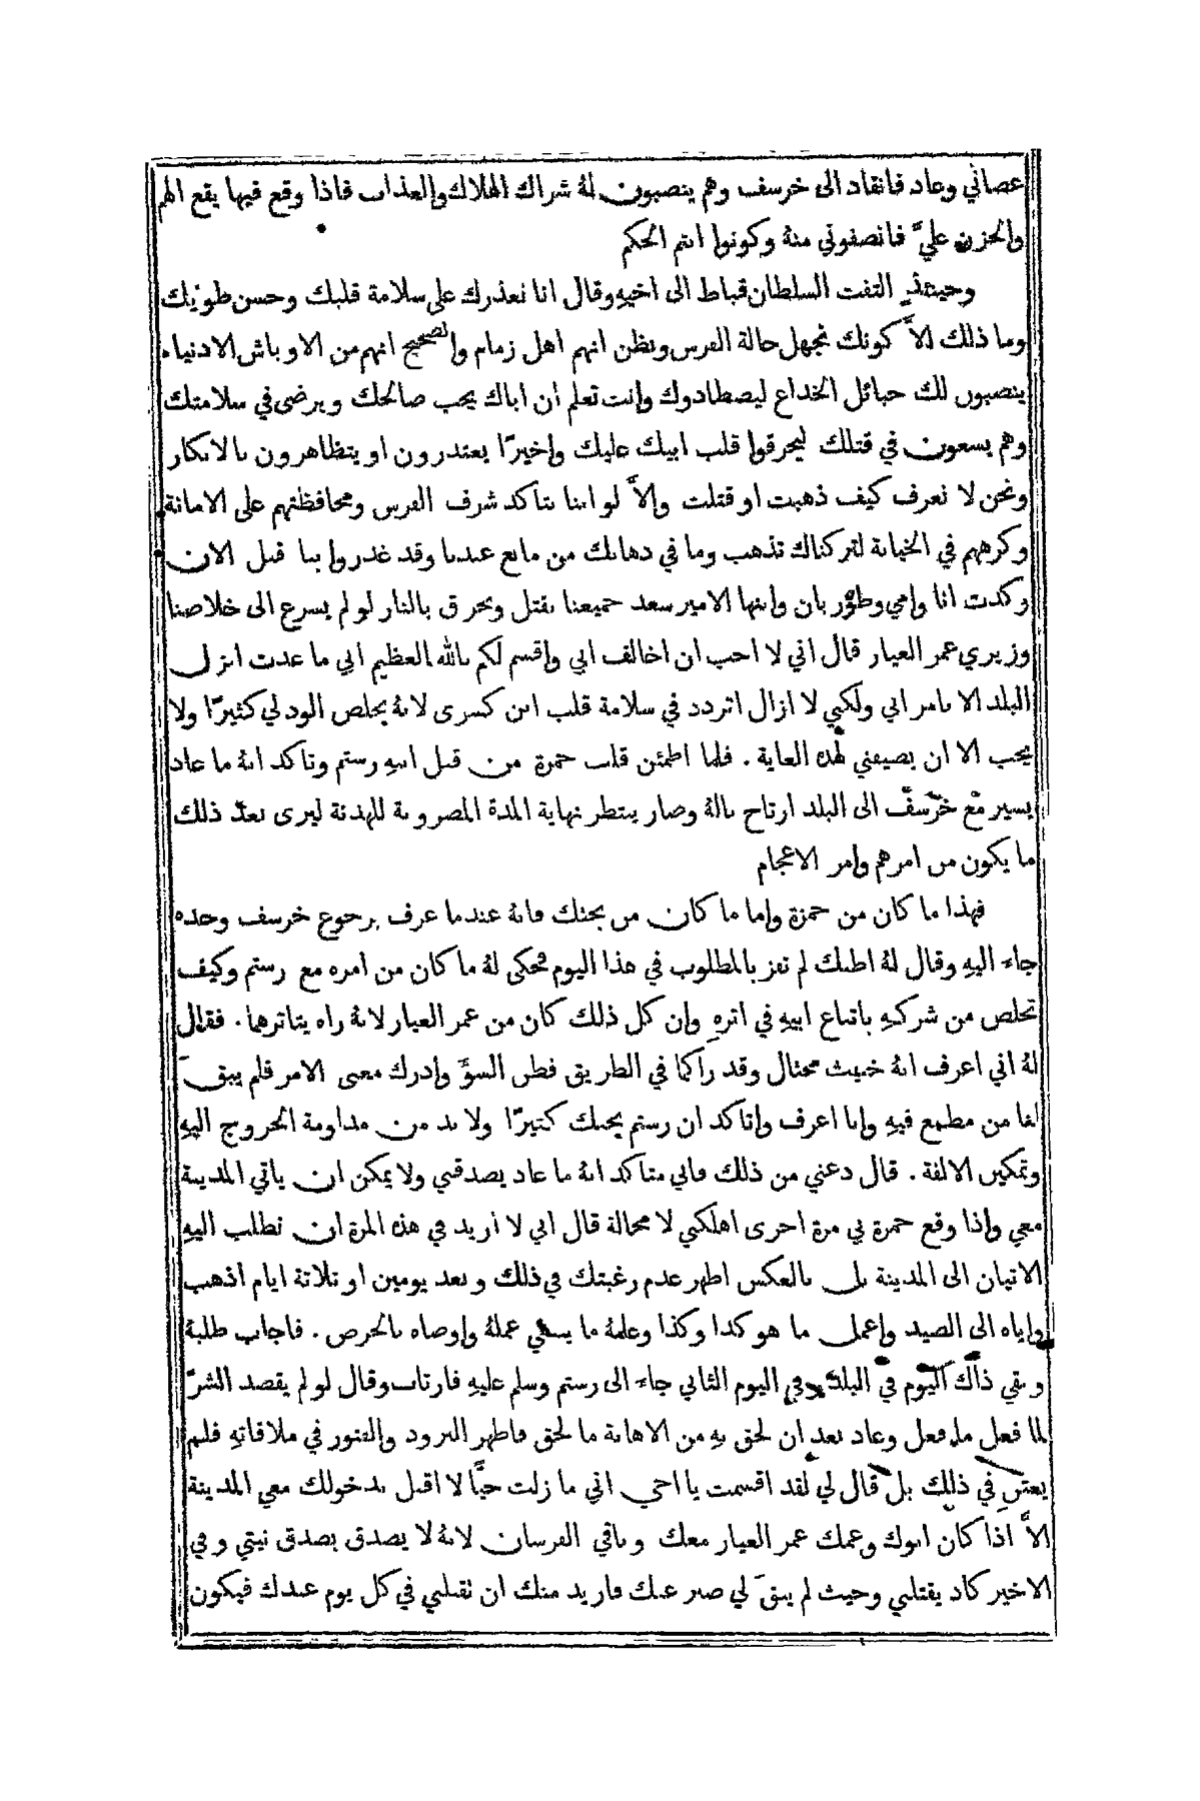 عصاني وعاد فانقاد الى خرسف وهم ينصبون لهُ شراك الهلاك والعذاب فاذا وقع فيها يقع الهم
والحزن عليَّ فانصفوني منهُ وكونوا انتم الحكم
وحينئذٍ التفت السلطان قباط الى اخيهِ وقال انا نعذرك على سلامة قلبك وحسن طويَّتك
وما ذلك الاَّ كونك تجهل حالة الفرس وتظن انهم اهل زمام والصحيح انهم من الاوباش الادنياء
ينصبون لك حبائل الخداع ليصطادوك وانت تعلم ان اباك يحب صالحك ويرضى في سلامتك
وهم يسعون في قتلك ليحرقوا قلب ابيك عليك واخيرًا يعتدرون او يتظاهرون بالانكار
ونحن لا نعرف كيف ذهبت او قتلت والاَّ لو اننا نتاكد شرف الفرس ومحافظتهم على الامانة
وكرههم في الخيانة لتركناك تذهب وما في ذهابك من مانع عندنا وقد غدروا بنا قبل الان
وكدت انا وامي وطور بان وابنها الامير سعد جميعنا نقتل ونحرق بالنار لو لم يسرع الى خلاصنا
وزيري عمر العيار قال اني لا احب ان اخالف ابي واقسم لكم بالله العظيم اني ما عدت انزل
البلد الا بامر ابي ولكني لا ازال اتردد في سلامة قلب ابن كسرى لانهُ يخلص الود لي كثيرًا ولا
يحب الا ان يصيفني لهذه الغاية . فلما اطمئن قلب حمزة من قبل ابنهِ رستم وتاكد انهُ ما عاد
يسير مع خرسف الى البلد ارتاح بالهُ وصار ينتظر نهاية المدة المضروبة للهدنة ليرى بعد ذلك
ما يكون من امرهم وامر الاعجام
فهذا ما كان من حمزة واما ما كان من بختك فانهُ عندما عرف برجوع خرسف وحده
جاء اليهِ وقال لهُ اظنك لم تفز بالمطلوب في هذا اليوم فحكى لهُ ما كان من امره مع رستم وكيف
تخلص من شركهِ باتباع ابيهِ في اثرهِ وان كل ذلك كان من عمر العيار لانهُ راه يتاثرهما . فقال
لهُ اني اعرف انهُ خبيث محتال وقد راكما في الطريق فظن السوَّ وادرك معنى الامر فلم يبقَ
لنا من مطمع فيهِ وانا اعرف واتاكد ان رستم يحبك كثيرًا ولا بد من مداومة الخروج اليهِ
وتمكين الالفة . قال دعني من ذلك فاني متاكد انهُ ما عاد يصدقني ولا يمكن ان ياتي المدينة
معي واذا وقع حمزة بي مرة اخرى اهلكني لا محالة قال اني لا اريد في هذه المرة ان تطلب اليهِ
الاتيان الى المدينة بل بالعكس اظهر عدم رغبتك في ذلك وبعد يومين او ثلاثة ايام اذهب
واياه الى الصيد واعمل ما هو كذا وكذا وعلمهُ ما يسغي عملهُ واوصاه بالحرص . فاجاب طلبهُ
وبقي ذاك اليوم في البلد وفي اليوم الثاني جاء الى رستم وسلم عليهِ فارتاب وقال لو لم يقصد الشرَّ
لما فعل ما فعل وعاد بعد ان لحق بهِ من الاهانة ما لحق فاظهر البرود والفتور في ملاقاتهِ فلم
في ذلك بل قال لي لقد اقسمت يا اخي اني ما زلت حيًّا لا اقبل بدخولك معي المدينة
الاَّ اذا كان ابوك وعمك عمر العيار معك وباقي الفرسان لانهُ لا يصدق بصدق نيتي وفي
الاخير كاد يقتلني وحيث لم يبقَ لي صبر عنك فاريد منك ان تقبلني في كل يوم عندك فيكون